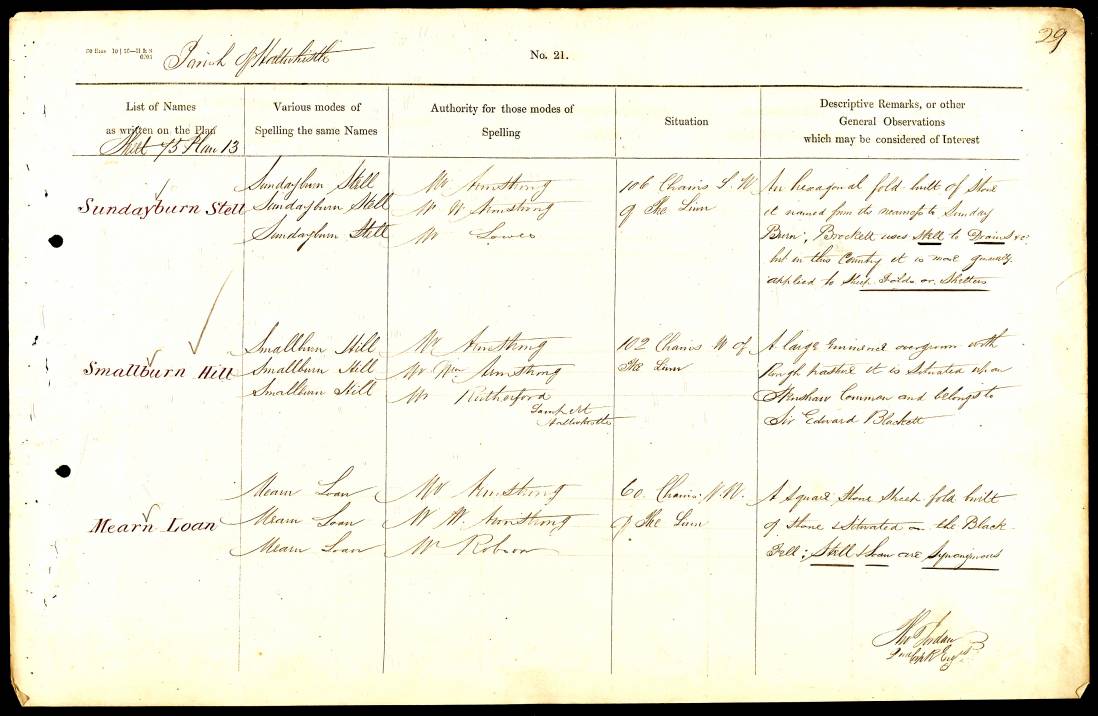 29
Parish of Haltwhistle
No. 21.
List of Names
as written on the Plan
Various modes of
Spelling the same Names
Authority for those modes of
Spelling
Situation
Descriptive Remarks, or other
General Observations
which may be considered of Interest
Sheet 75 Plan 13
Sundayburn Stell
Sundayburn Stell
Sundayburn Stell
Sundayburn Stell
Mr Armstrong
Mr W Armstrong
Mr Lowes
106 Chains S. W.
of The Linn
An hexagonal fold built of Stone
it named from its nearness to Sunday
Burn; Brockett uses Stell to Drains &c
but in this Country it is more generally
applied to Sheep Folds or Shelters
Smallburn Hill
Smallburn Hill
Smallburn Hill
Smallburn Hill
Mr Armstrong
Mr Wm Armstrong
Mr Rutherford
Haltwhistle
102 Chains W of
The Linn
A large Eminence overgrown with
Rough pasture it is Situated upon
Henshaw Common and belongs to
Sir Edward Blackett
Mearn Loan
Mearn Loan
Mearn Loan
Mearn Loan
Mr Armstrong
Mr W. Armstrong
Mr Robson
60 Chains N.W.
of The Linn
A Square Stone Sheep fold built
of Stone & Situated on the Black
Fell; Stell & Loan are Synonymous
Thos Jordan